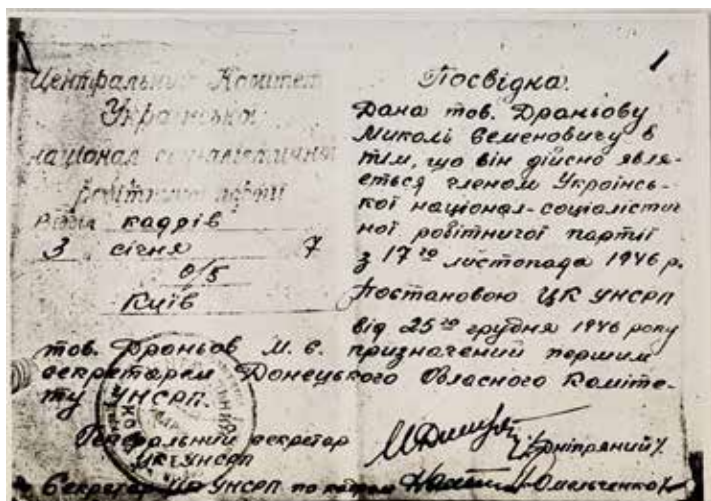 Центральний Комітет
Української
націонал соціалістичної
робітничої партії
кадрів
3 січня 7
0/5
Київ
1
Посвідка.
Дана тов. Драньову
Миколі Семеновичу в
тим, що він дійсно явля-
ється членом Українсь-
кої націонал-соціалістич
ної робітничої партії
з 17го листопада 1946 р.
Постановою ЦК УНСРП
від 25го грудня 1946 року
тов. Драньов М. С. призначений першим
секретарем Донецького Обласного Коміте-
ту УНСРП.
Генеральний секретар
ЦК УНСРП /Дніпряний/
Секретар ЦК УНСРП по кадрам /Омельченко/